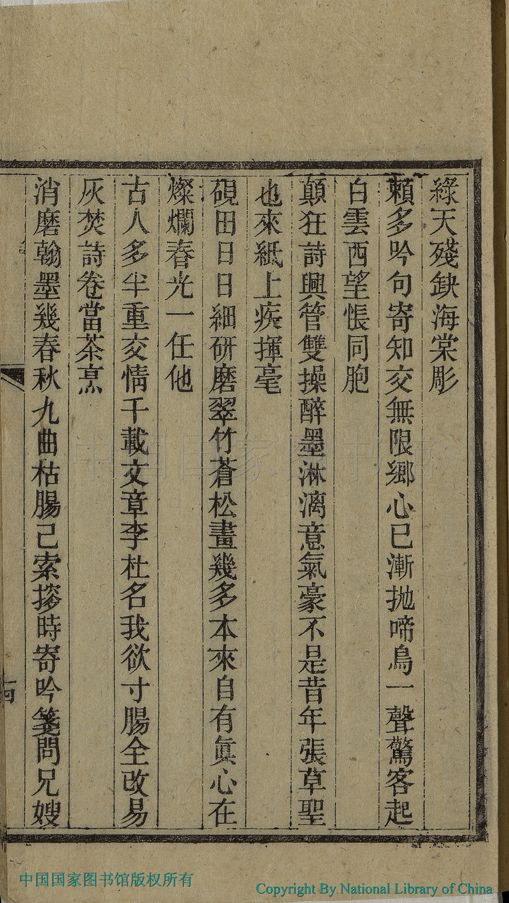 綠天殘缺海棠彫
賴多吟句寄知交無限鄉心已漸抛啼鳥一聲驚客起
白雲西望悵同胞
顛狂詩興管雙操醉墨淋漓意氣豪不是昔年張草聖
也來紙上疾揮毫
硯田日日細研磨翠竹蒼松畫幾多本來自有眞心在
燦爛春光一任他
古人多半重交情千載文章李杜名我欲寸腸全改易
灰焚詩卷當茶烹
消磨翰墨幾春秋九曲枯腸已索搜時寄吟箋問兄嫂
十四
中国国家图书馆版权所有
Copyright By National Library of China